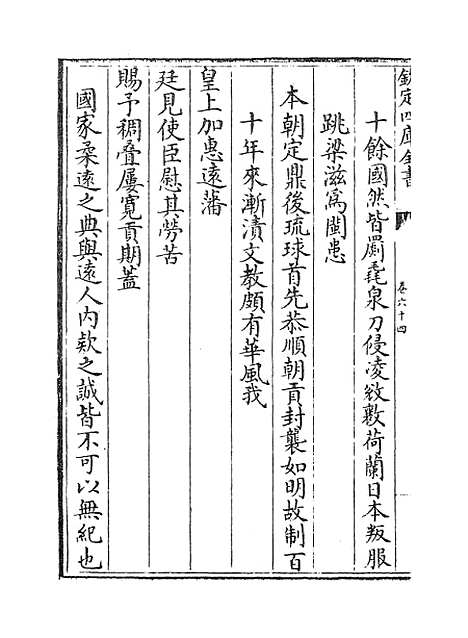 欽定四庫全書
卷六十四
十餘國然皆罽毳泉刀侵凌紋數荷蘭日本叛服
跳梁滋為閩患
本朝定鼎後琉球首先恭順朝貢封襲如明故制百
十年來漸漬文教頗有華風我
皇上加惠遠藩
廷見使臣慰其勞苦
賜予稠叠屢寛貢期蓋
國家柔遠之典與遠人內欵之誠皆不可以無紀也